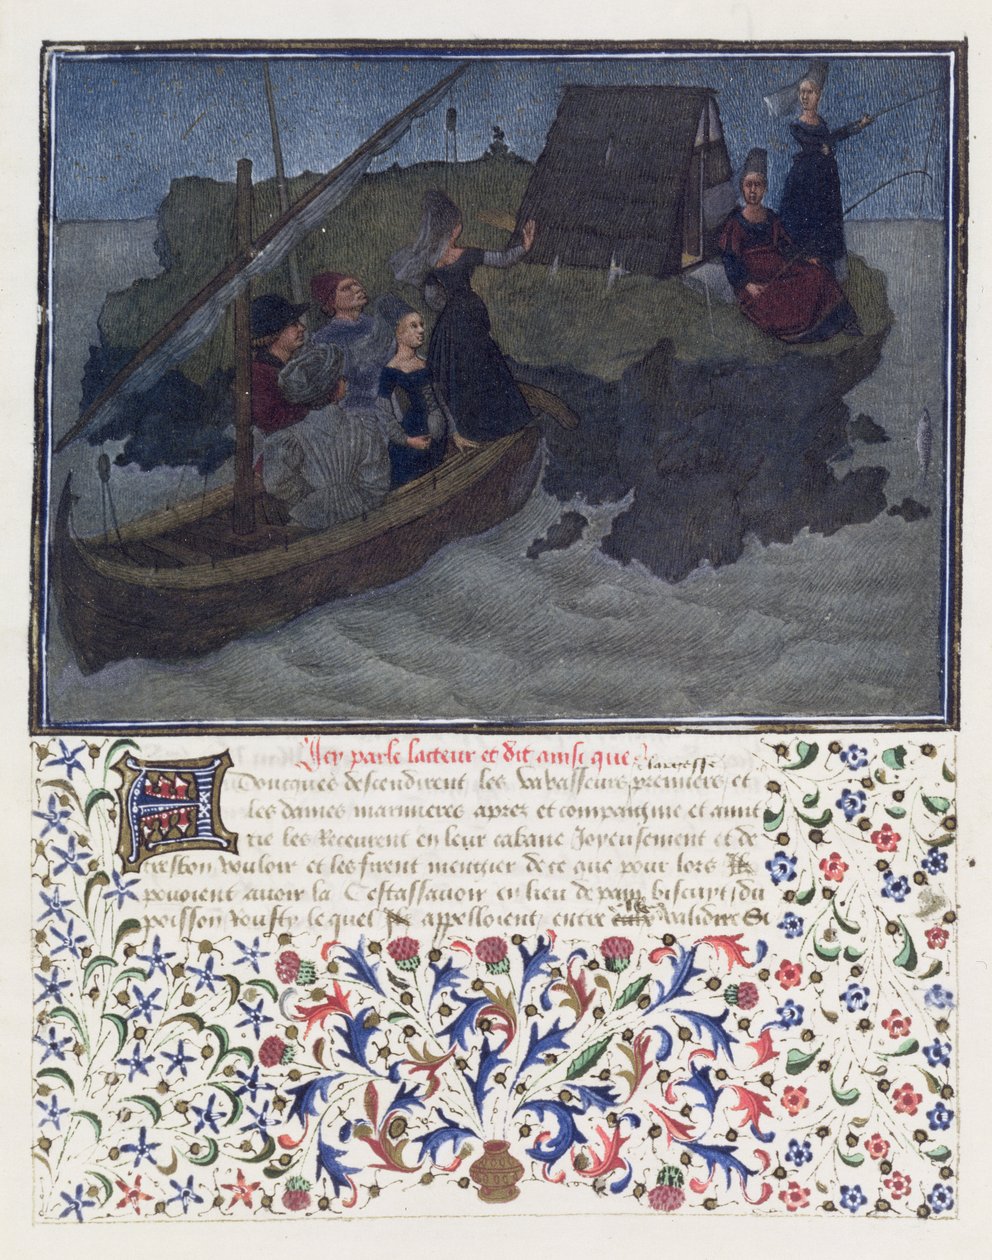 Icy parle lacteur et dit ainsi que
largesse
Adoncques descendirent les vavasseurs premiers et
les dames marinieres aprez et compaignie et amit
tie les Receurent en leur cabane Joyeusement et de
tresbon vouloir et les firent mengier de ce que pour lors
povoient avoir la Cestassavoir en lieu de pain biscuyt du
poisson Rousty lequel appelloient entre Si